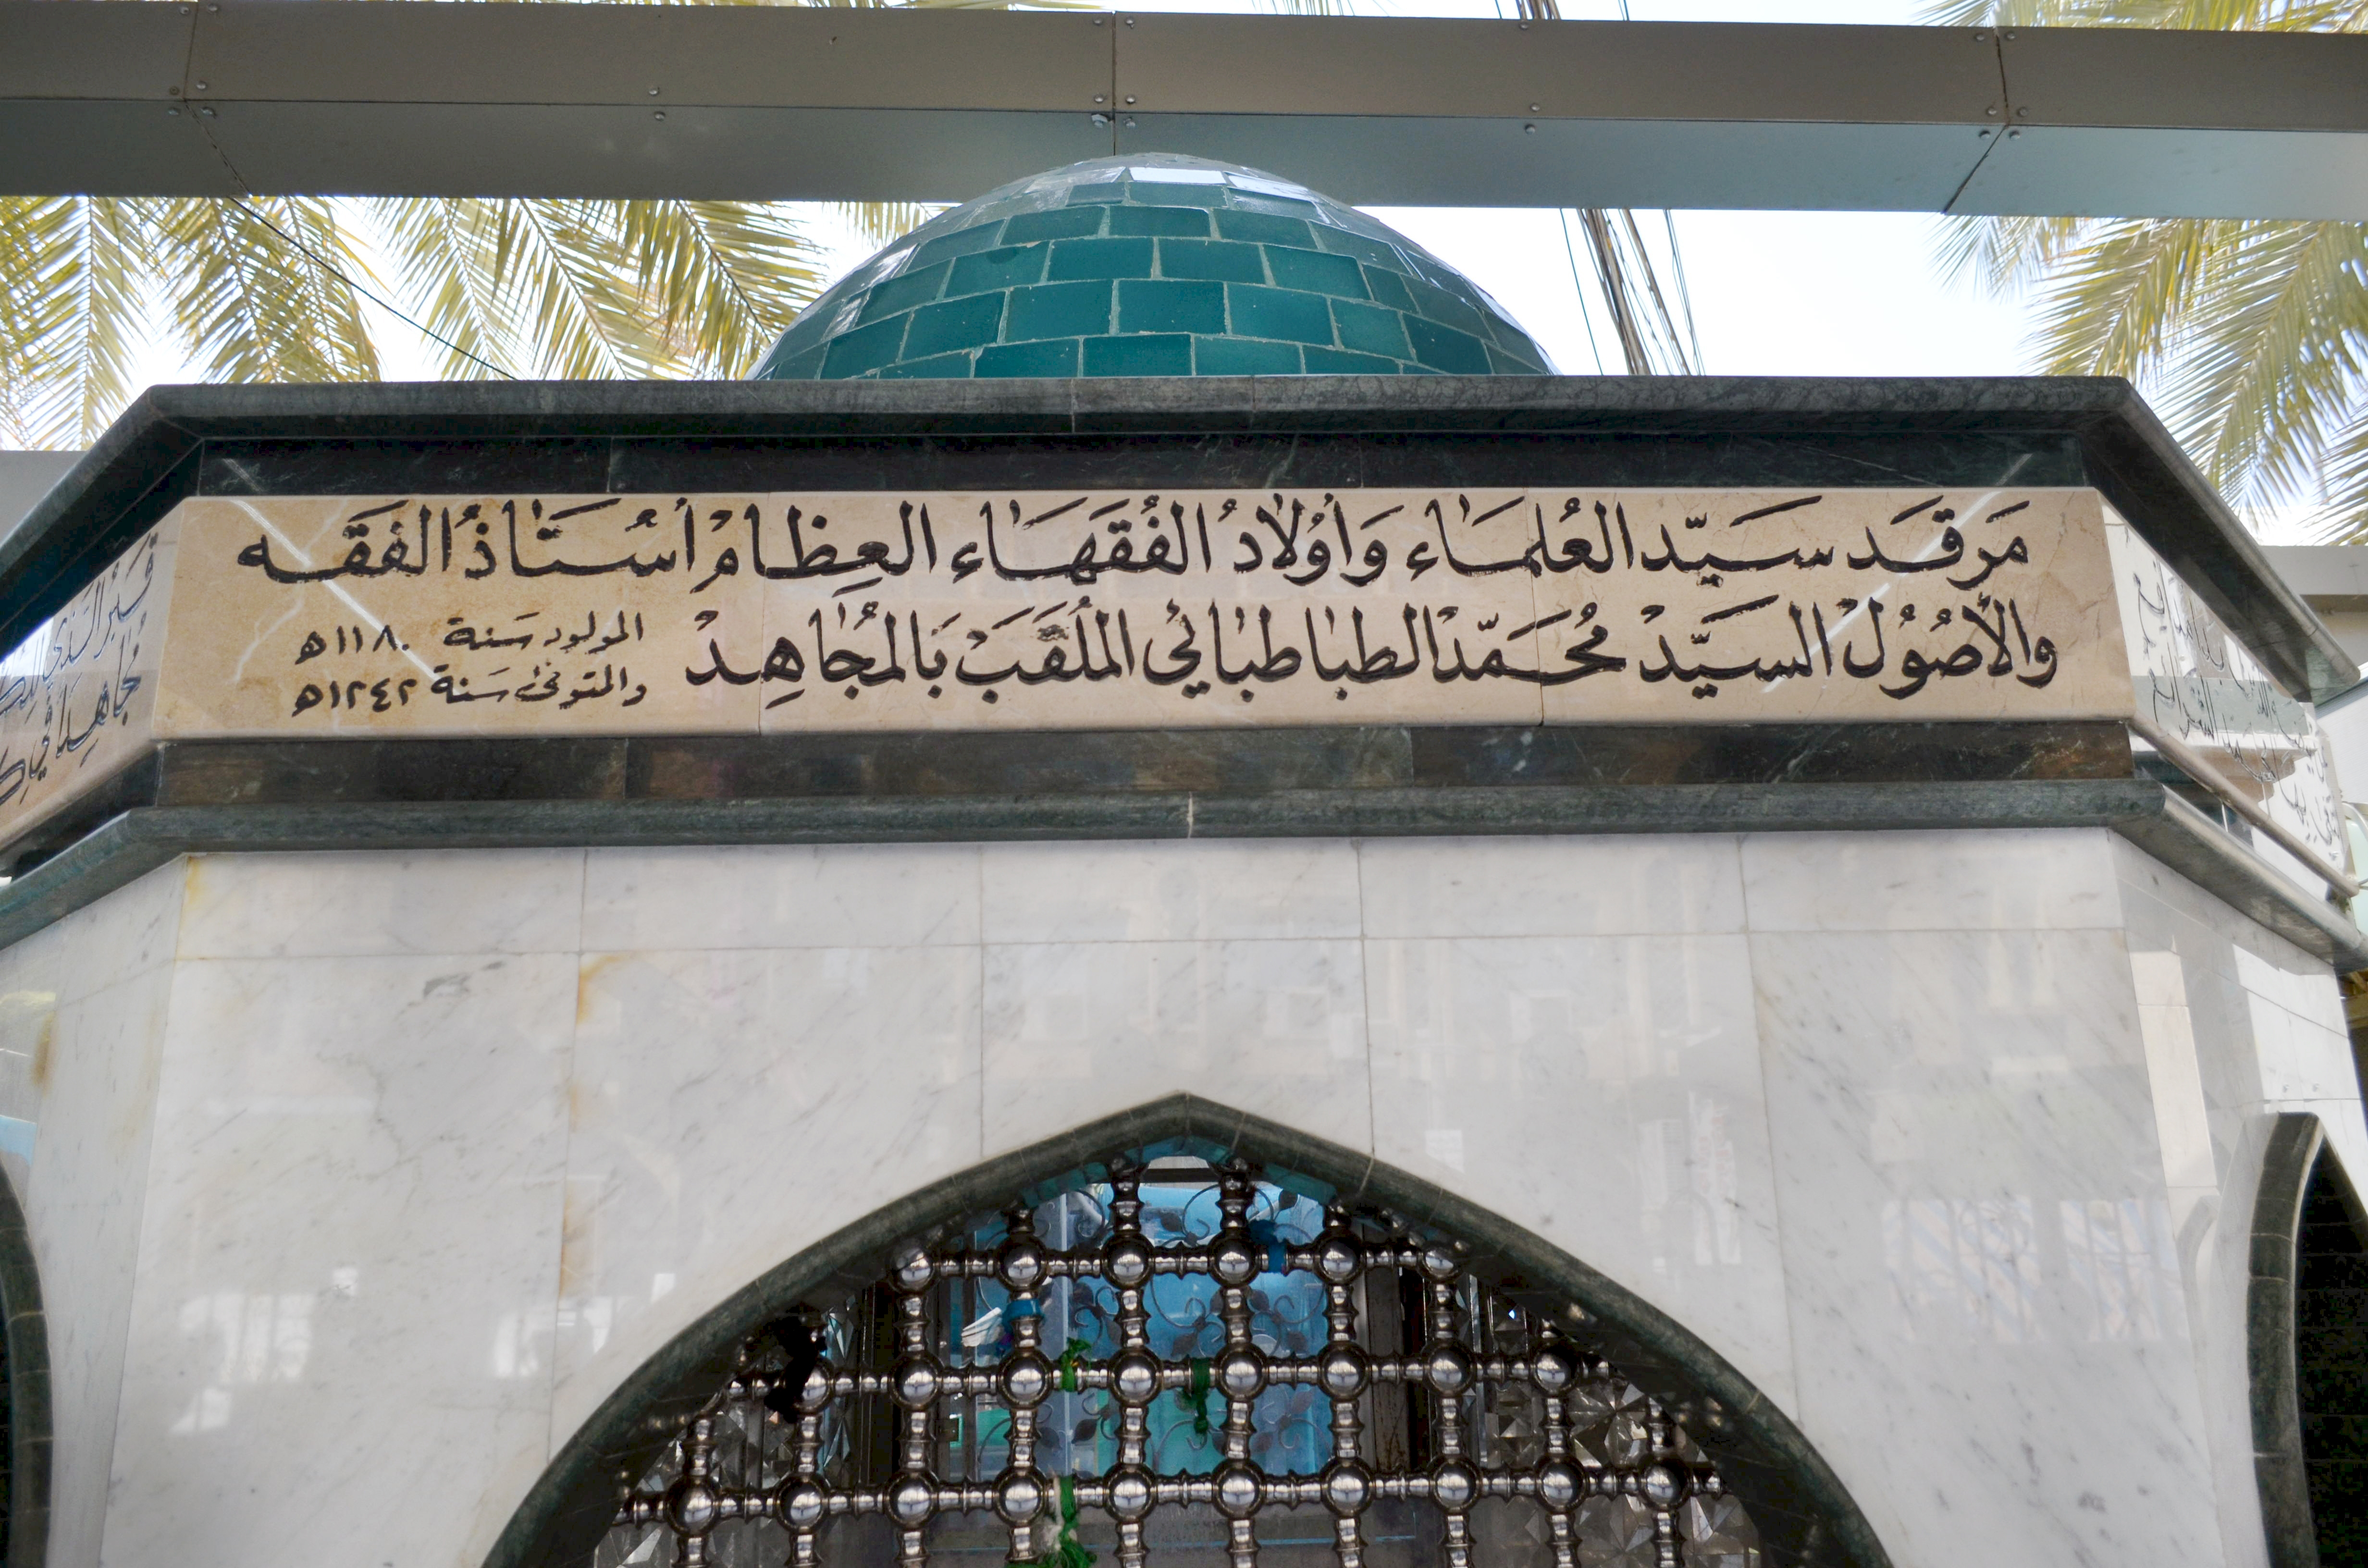 مَرقَد سَيّد العُلمَاء وَأوُلادُ الفُقَهَاء العِظامْ أسُتَاذُ الفَقَه
والأصُوُلْ السَيَّدْ مُحَمَّدْ الطباطبائي المُلقَبَ بَالمُجَاهِدْ
المولود سَنة ١١٨٠ه
والمتوفىٰ سَنة ١٢٤٢ه